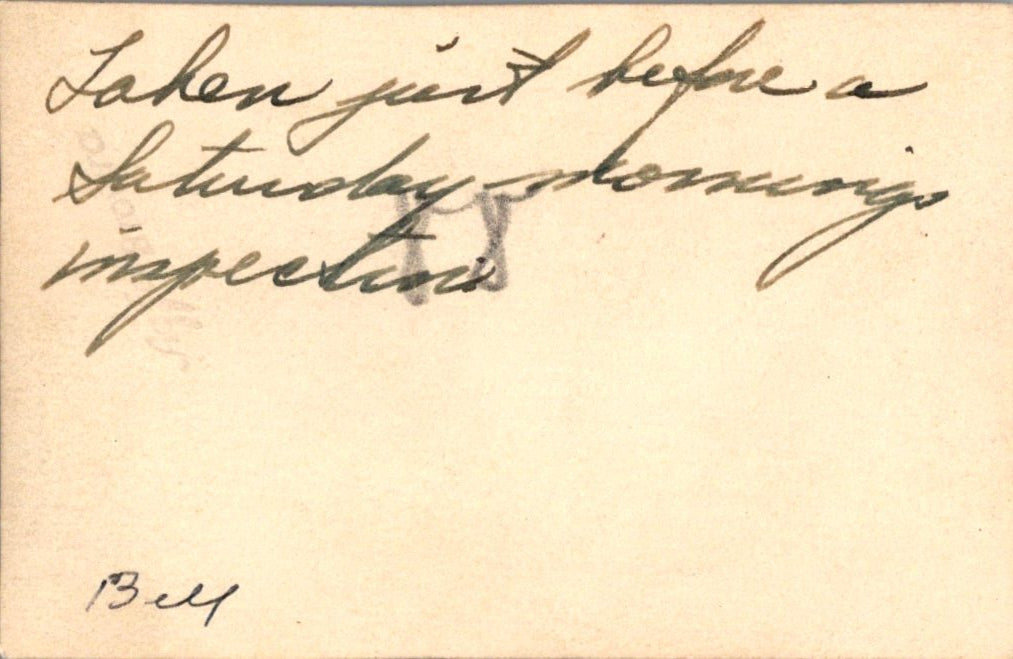 Taken just before a
Saturday mornings
inspection.
Bell